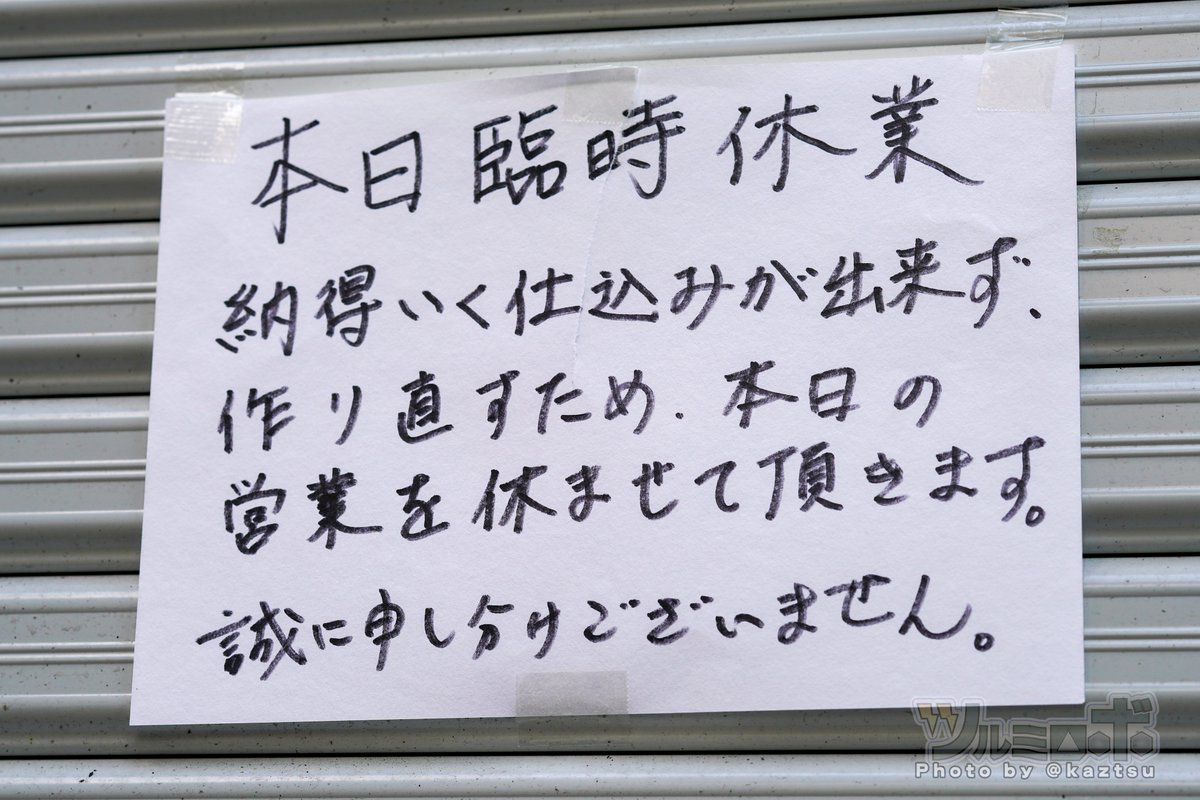 本日臨時休業
納得いく仕込みが出来ず、
作り直すため、本日の
営業を休ませて頂きます。
誠に申し分けございません。
ツルミロボ
Photo by @kaztsu